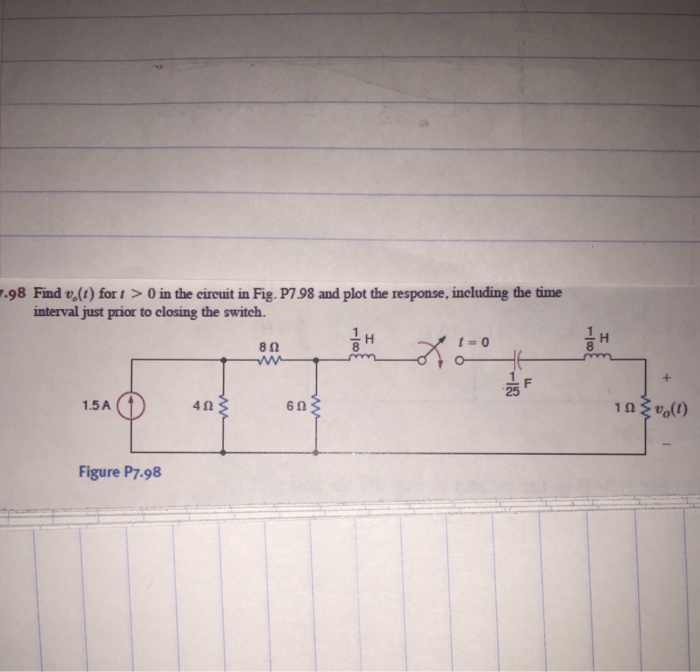 7.98 Find vₒ(t) for t > 0 in the circuit in Fig. P7.98 and plot the response, including the time
interval just prior to closing the switch.
8 Ω
1/8 H
t = 0
1/8 H
1/25 F
1.5 A
4 Ω
6 Ω
1 Ω
+
vₒ(t)
−
Figure P7.98